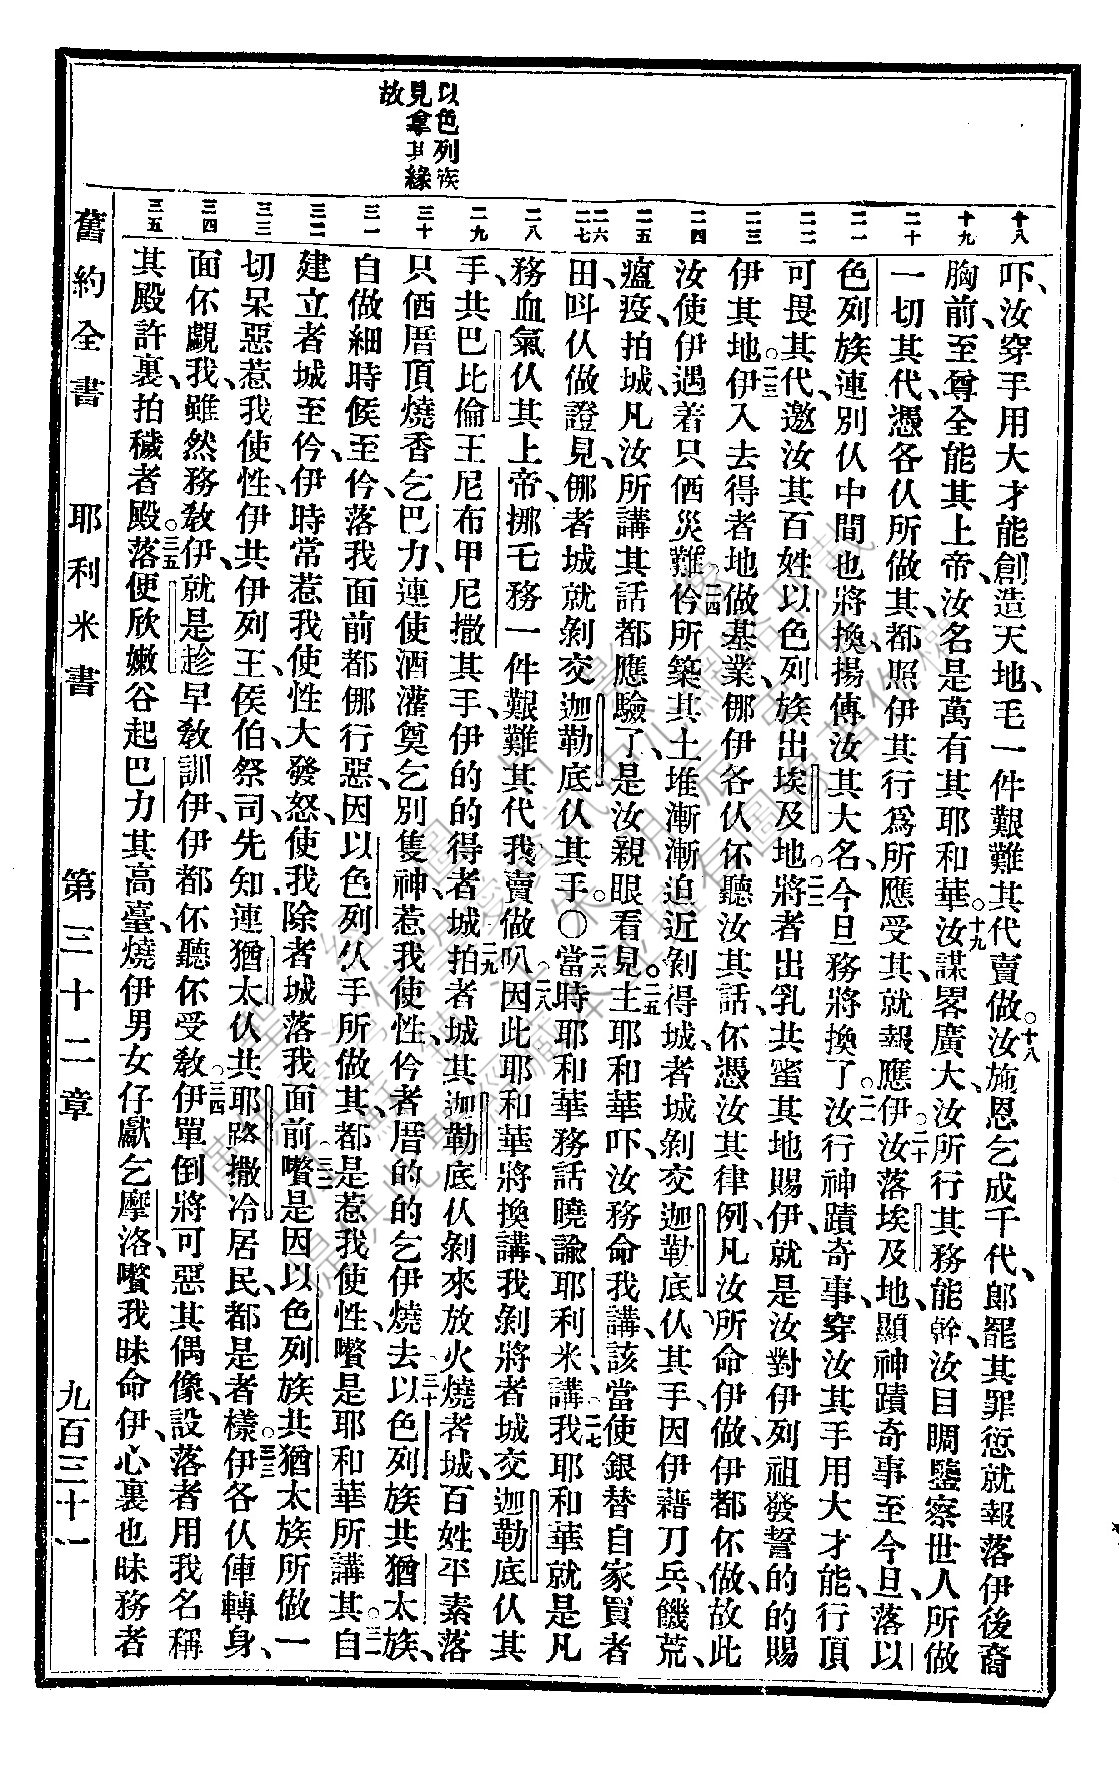 以色列族
見拿其緣
故
十八 十九 二十 二一 二二 二三 二四 二五 二六 二七 二八 二九 三十 三一 三二 三三 三四 三五
吓、汝穿手用大才能創造天地、毛一件艱難其代賣做。十八汝施恩乞成千代、郎罷其罪愆就報落伊後裔
胸前、至尊全能其上帝、汝名是萬有其耶和華。十九汝謀畧廣大、汝所行其務能幹、汝目睭鑒察世人所做
一切其代、憑各仈所做其、都照伊其行爲、所應受其、就報應伊。二十汝落埃及地、顯神蹟奇事至今旦、落以
色列族、連別仈中間也將換、揚傳汝其大名、今旦務將換了。二一汝行神蹟奇事、穿汝其手用大才能、行頂
可畏其代、邀汝其百姓以色列族出埃及地。二二將者出乳共蜜其地賜伊、就是汝對伊列祖發誓的的賜
伊其地。二三伊入去得者地做基業、㑚伊各仈伓聽汝其話、伓憑汝其律例、凡汝所命伊做、伊都伓做、故此
汝使伊遇着只㑚災難。二四仱所築其土堆漸漸迫近剝得城、者城剝交迦勒底仈其手、因伊藉刀兵、饑荒、
瘟疫、拍城、凡汝所講其話都應驗了、是汝親眼看見。二五主耶和華吓、汝務命我講、該當使銀替自家買者
田、呌仈做證見、㑚者城就剝交迦勒底仈其手。〇二六當時耶和華務話曉諭耶利米、講、二七我耶和華就是凡
務血氣仈其上帝、挪乇務一件艱難其代我賣做叭。二八因此耶和華將換講、我剝將者城交迦勒底仈其
手、共巴比倫王尼布甲尼撒其手、伊的的得者城。二九拍者城其迦勒底仈剝來放火燒者城、百姓平素落
只㑚厝頂燒香乞巴力、連使酒灌奠乞別隻神、惹我使性、仱者厝的的乞伊燒去。三十以色列族共猶太族、
自做細時候至仱、落我面前都㑚行惡、因以色列仈手所做其、都是惹我使性、嚽是耶和華所講其。三一自
建立者城至仱、伊時常惹我使性大發怒、使我除者城落我面前、三二嚽是因以色列族共猶太族所做一
切呆惡、惹我使性、伊共伊列王、侯伯、祭司、先知、連猶太仈共耶路撒冷居民、都是者樣。三三伊各仈俥轉身、
面伓覷我、雖然務敎伊、就是趁早敎訓伊、伊都伓聽伓受敎。三四伊單倒將可惡其偶像、設落者用我名稱
其殿許裏、拍穢者殿。三五落便欣嫩谷起巴力其高臺、燒伊男女仔獻乞摩洛、嚽我昧命伊、心裏也昧務者
舊約全書 耶利米書 第三十二章 九百三十一